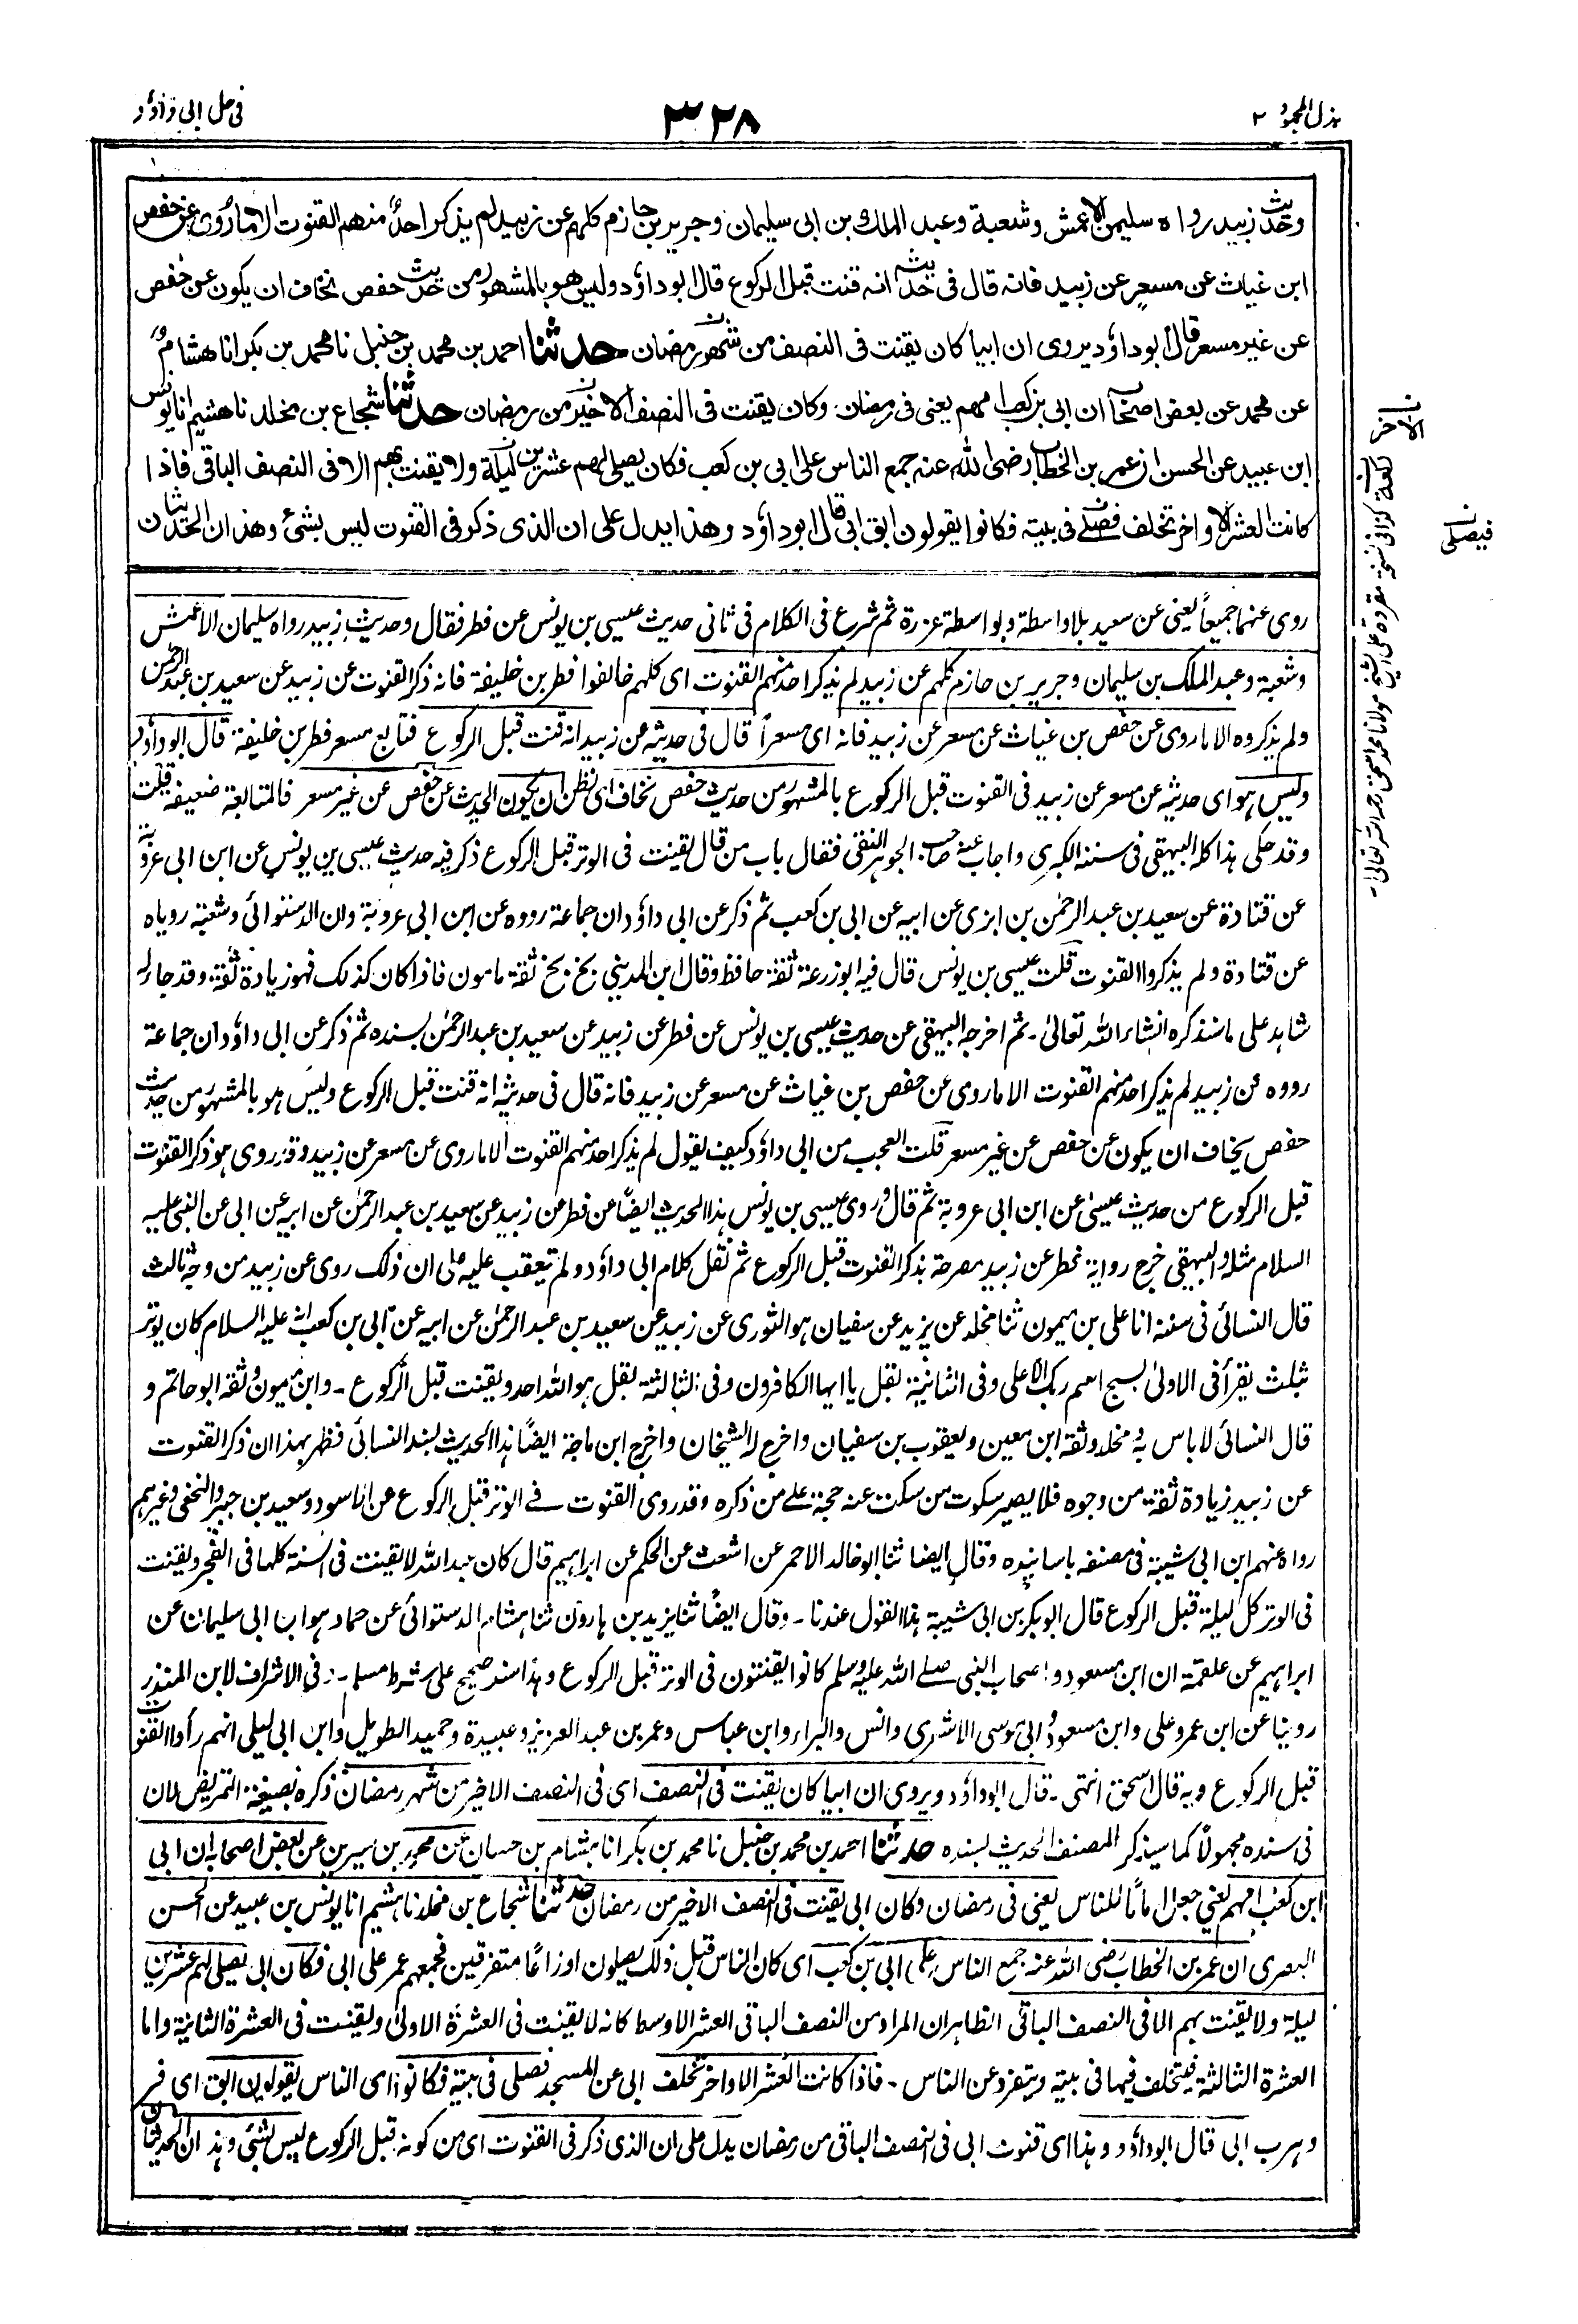 بذل المجهود ٢
٣٢٨
في حل ابي داؤد
وحديث زبيد رواه سليمن الاعمش وشعبة وعبد الملك بن ابى سليمان وجرير بن حازم كلهم عن زبيد لم يذكر احد منهم القنوت الا ما روى عن حفص
ابن غياث عن مسعر عن زبيد فانه قال فى حديثه انه قنت قبل الركوع قال ابوداؤد وليس هو بالمشهور من حديث حفص نخاف ان يكون عن حفص
عن غير مسعر قال ابوداؤد يروى ان ابيا كان يقنت فى النصف من شهر رمضان حدثنا احمد بن محمد بن حنبل نا محمد بن بكر انا هشام
عن محمد عن بعض اصحابه ان ابى بن كعب امهم يعنى فى رمضان وكان يقنت فى النصف الاخير من رمضان حدثنا شجاع بن مخلد نا هشيم انا يونس
ابن عبيد عن الحسن ان عمر بن الخطاب رضى الله عنه جمع الناس على ابى بن كعب فكان يصلى لهم عشرين ليلة ولا يقنت بهم الا فى النصف الباقى فاذا
كانت العشر الاواخر تخلف فصلى فى بيته فكانوا يقولون ابق ابى قال ابوداؤد وهذا يدل على ان الذى ذكر فى القنوت ليس بشئ وهذان الحديثان
الآخر
ركعة كذا فى نسخة مقروءة على الشيخ مولانا محمد اسحق رحمه الله تعالى
فيصلى
روى عنهما جميعاً يعنى عن سعيد بلا واسطة وبواسطة عزرة ثم شرع فى الكلام فى ثانى حديث عيسى بن يونس عن فطر فقال وحديث زبيد رواه سليمان الاعمش
وشعبة وعبد الملك بن سليمان وجرير بن حازم كلهم عن زبيد لم يذكر احد منهم القنوت اى كلهم خالفوا فطر بن خليفة فانه ذكر القنوت عن زبيد عن سعيد بن عبد الرحمن
ولم يذكروه الا ما روى عن حفص بن غياث عن مسعر عن زبيد فانه اى مسعراً قال فى حديثه عن زبيد انه قنت قبل الركوع فتابع مسعر فطر بن خليفة قال ابوداؤد
وليس هو اى حديثه عن مسعر عن زبيد فى القنوت قبل الركوع بالمشهور من حديث حفص نخاف اى نظن ان يكون الحديث عن حفص عن غير مسعر فالمتابعة ضعيفة قلت
وقد حكى هذا كله البيهقى فى سننه الكبرى واجاب عنه صاحب الجوهر النقى فقال باب من قال يقنت فى الوتر قبل الركوع ذكر فيه حديث عيسى بن يونس عن ابن ابى عروبة
عن قتادة عن سعيد بن عبد الرحمٰن بن ابزى عن ابيه عن ابى بن كعب ثم ذكر عن ابى داؤد ان جماعة رووه عن ابن ابى عروبة وان الدستوائى وشعبة روياه
عن قتادة ولم يذكروا القنوت قلت عيسى بن يونس قال فيه ابوزرعة ثقة حافظ وقال ابن المدينى بخ بخ ثقة مامون فاذا كان كذلك فهو زيادة ثقة وقد جاء له
شاهد على ما سنذكره انشاء الله تعالىٰ۔ ثم اخرجه البيهقى عن حديث عيسى بن يونس عن فطر عن زبيد عن سعيد بن عبد الرحمٰن بسنده ثم ذكر عن ابى داؤد ان جماعة
رووه عن زبيد لم يذكر احد منهم القنوت الا ما روى عن حفص بن غياث عن مسعر عن زبيد فانه قال فى حديثه انه قنت قبل الركوع وليس هو بالمشهور من حديث
حفص يخاف ان يكون عن حفص عن غير مسعر قلت العجب من ابى داؤد كيف يقول لم يذكر احد منهم القنوت الا ما روى عن مسعر عن زبيد وقد روى هو ذكر القنوت
قبل الركوع من حديث عيسىٰ عن ابن ابى عروبة ثم قال وروى عيسى بن يونس هذا الحديث ايضاً عن فطر عن زبيد عن سعيد بن عبد الرحمٰن عن ابيه عن ابى عن النبى عليه
السلام مثله والبيهقى خرج رواية فطر عن زبيد مصرحة بذكر القنوت قبل الركوع ثم نقل كلام ابى داؤد ولم يتعقب عليه على ان ذلك روى عن زبيد من وجه ثالث
قال النسائى فى سننه انا على بن ميمون ثنا مخلد عن يزيد عن سفيان هو الثورى عن زبيد عن سعيد بن عبد الرحمٰن عن ابيه عن ابى بن كعب انه عليه السلام كان يوتر
بثلث يقرأ فى الاولىٰ بسبح اسم ربك الاعلى وفى الثانية بقل يا ايها الكافرون وفى الثالثة بقل هو الله احد ويقنت قبل الركوع۔ وابن ميمون وثقه ابوحاتم و
قال النسائى لا باس به ومخلد وثقه ابن معين ويعقوب بن سفيان واخرج له الشيخان واخرج ابن ماجة ايضاً هذا الحديث بسند النسائى فظهر بهذا ان ذكر القنوت
عن زبيد زيادة ثقة من وجوه فلا يصير سكوت من سكت عنه حجة على من ذكره وقد روى القنوت فى الوتر قبل الركوع عن الاسود وسعيد بن جبير والنخعى وغيرهم
رواه عنهم ابن ابى شيبة فى مصنفه باسانيده وقال ايضا ثنا ابوخالد الاحمر عن اشعث عن الحكم عن ابراهيم قال كان عبد الله لا يقنت فى السنة كلها فى الفجر ويقنت
فى الوتر كل ليلة قبل الركوع قال ابوبكر بن ابى شيبة هذا القول عندنا۔ وقال ايضاً ثنا يزيد بن هارون ثنا هشام الدستوائى عن حماد هو ابن ابى سليمان عن
ابراهيم عن علقمة ان ابن مسعود واصحاب النبى صلى الله عليه وسلم كانوا يقنتون فى الوتر قبل الركوع وهذا سند صحيح على شرط مسلم۔ وفى الاشراف لابن المنذر
روينا عن ابن عمر وعلى وابن مسعود وابى موسى الاشعرى وانس والبراء وابن عباس وعمر بن عبد العزيز وعبيدة وحميد الطويل وابن ابى ليلى انهم رأوا القنوت
قبل الركوع وبه قال اسحق انتهى۔ قال ابوداؤد ويروى ان ابيا كان يقنت فى النصف اى فى النصف الاخير من شهر رمضان ذكره بصيغة التمريض لان
فى سنده مجهولاً كما سيذكر المصنف الحديث بسنده حدثنا احمد بن محمد بن حنبل نا محمد بن بكر انا هشام بن حسان عن محمد بن سيرين عن بعض اصحابه ان ابى
ابن كعب امهم يعنى جعل اماماً للناس يعنى فى رمضان وكان ابى يقنت فى النصف الاخير من رمضان حدثنا شجاع بن مخلد نا هشيم انا يونس بن عبيد عن الحسن
البصرى ان عمر بن الخطاب رضى الله عنه جمع الناس على ابى بن كعب اى كان الناس قبل ذلك يصلون اوزاعاً متفرقين فجمعهم عمر على ابى فكان ابى يصلى لهم عشرين
ليلة ولا يقنت بهم الا فى النصف الباقى الظاهر ان المراد من النصف الباقى العشر الاوسط كانه لا يقنت فى العشرة الاولىٰ ويقنت فى العشرة الثانية واما
العشرة الثالثة فيتخلف فيها فى بيته ويتفرد عن الناس۔ فاذا كانت العشر الاواخر تخلف ابى عن المسجد فصلى فى بيته فكانوا اى الناس يقولون ابق اى فر
وهرب ابى قال ابوداؤد وهذا اى قنوت ابى فى النصف الباقى من رمضان يدل على ان الذى ذكر فى القنوت اى من كونه قبل الركوع ليس بشئ وهذان الحديثان